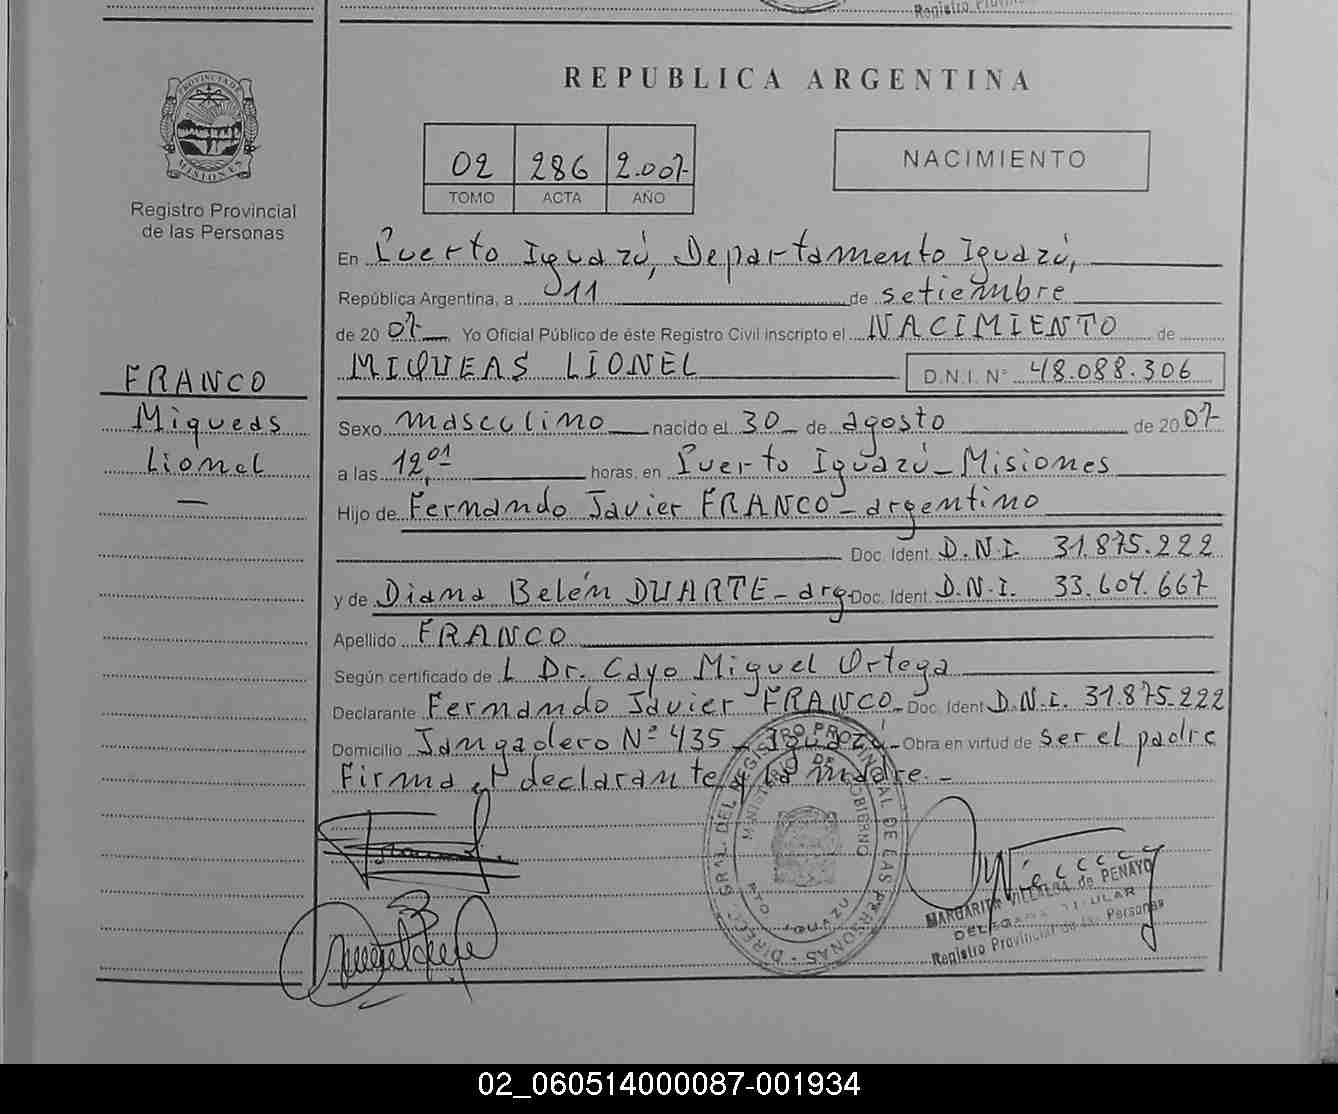 Registro Provin
PROVINCIA DE
MISIONES
Registro Provincial
de las Personas
FRANCO
Miqueas
Lionel
—
REPUBLICA ARGENTINA
02 286 2.007-
TOMO ACTA AÑO
NACIMIENTO
En Puerto Iguazú, Departamento Iguazú,
República Argentina, a 11 de setiembre
de 20 07- Yo Oficial Público de éste Registro Civil inscripto el NACIMIENTO de
MIQUEAS LIONEL D.N.I. N° 48.088.306
Sexo masculino nacido el 30 de agosto de 20 07-
a las 12,01 horas, en Puerto Iguazú - Misiones
Hijo de Fernando Javier FRANCO - argentino
Doc. Ident. D.N.I. 31.875.222
y de Diana Belén DUARTE - arg. Doc. Ident. D.N.I. 33.604.667
Apellido FRANCO
Según certificado de L Dr. Cayo Miguel Ortega
Declarante Fernando Javier FRANCO - Doc. Ident D.N.I. 31.875.222
Domicilio Jangadero N° 435 - Iguazú - Obra en virtud de ser el padre
Firma el declarante y la madre. -
DIREC. GRAL. DEL REGISTRO PROVINCIAL DE LAS PERSONAS
MINISTERIO DE GOBIERNO
PTO IGUAZU
MARGARITA VILLALBA de PENAYO
DELEGADA TITULAR
Registro Provincial de las Personas
02_060514000087-001934